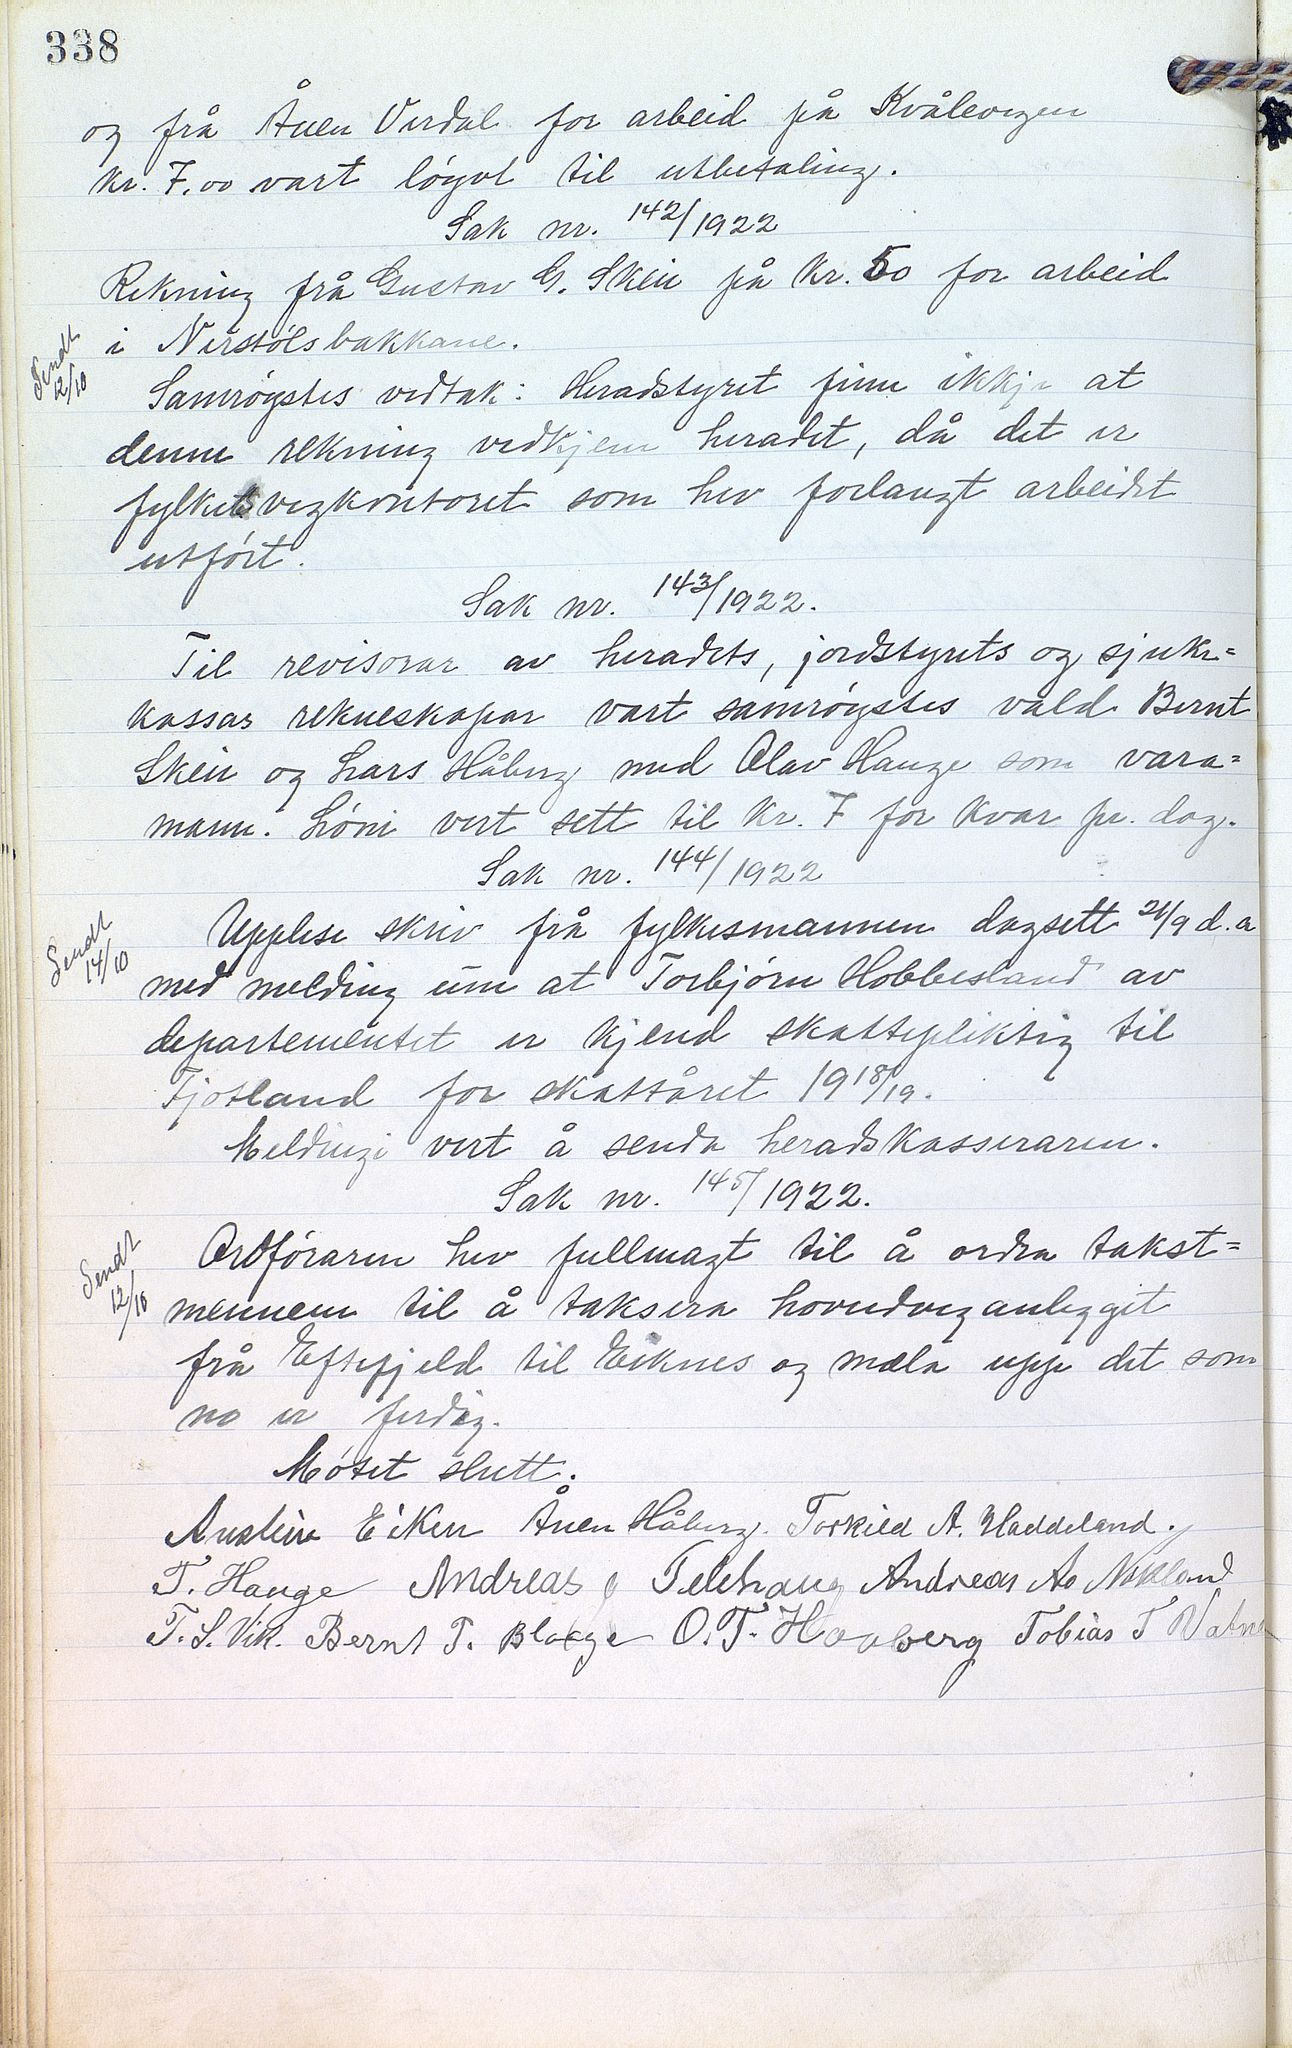 338
og frå Ånen Virdal for arbeid på Kvålevegen
kr. 7.00 vart løyvt til utbetaling.
Sak nr. 142/1922
Rekning frå Gustav G. Skeie på kr. 50 for arbeid
i Nerstølsbakkane.
Sendt
12/10
Samrøystes vedtak: Heradstyret finn ikkje at
denne rekning vedkjem heradet, då det er
fylkets vegkontoret som hev forlangt arbeidet
utført.
Sak nr. 143/1922.
Til revisorar av heradets, jordstyrets og sjuke=
kassas rekneskapar vart samrøystes vald Bernt
Skeie og Lars Håberg med Olav Hauge som vara=
mann. Løni vert sett til kr. 7 for kvar pr. dag.
Sak nr. 144/1922
Sendt
14/10
Upplese skriv frå fylkesmannen dagsett 21/9 d.a
med melding um at Torbjørn Hobbesland av
departementet er kjend skattepliktig til
Fjotland for skattåret 1918/19.
Meldingi vert å senda heradskasseraren.
Sak nr. 145/1922.
Sendt
12/10
Ordføraren hev fullmagt til å ordra takst=
mennene til å taksera hovudveganlegget
frå Eftefjeld til Eiknes og mæla uppe det som
no er ferdig.
Møtet slutt.
Anstein Eiken Ånen Håberg. Torkild A. Haddeland.
T. Hauge Andreas Telehaug Andreas As Nokland
T. S. Vik. Bernt T. Blage O. T. Haaberg Tobias T Vatne